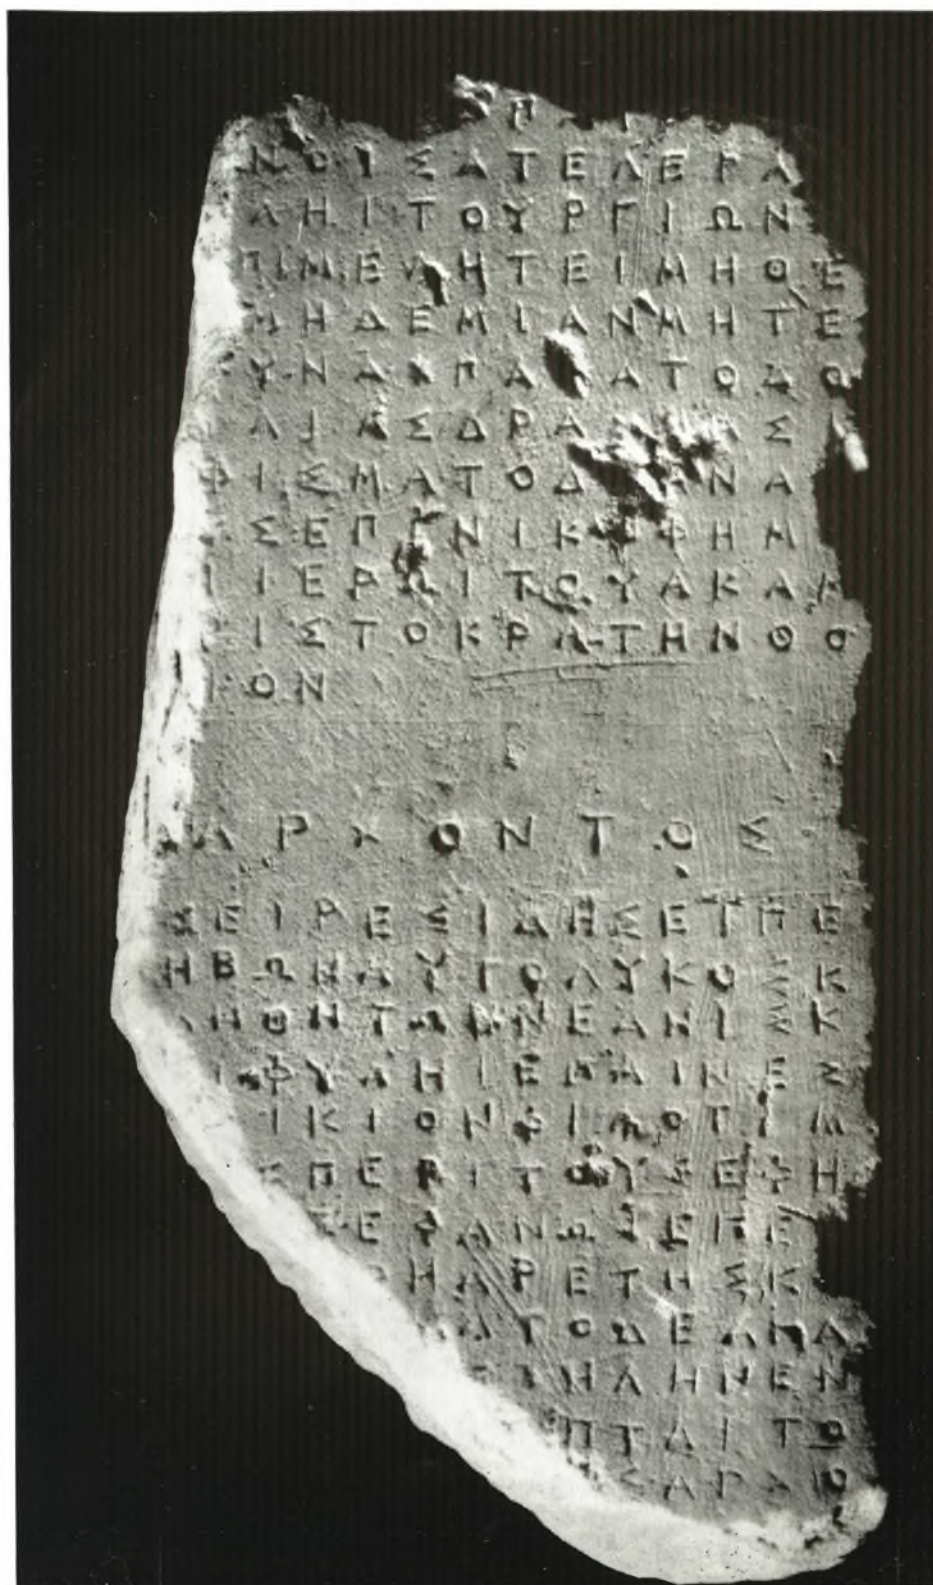 ΝΟΥΣΑΤΕΛΕΡΑ
ΛΗΙΤΟΥΡΓΙΩΝ
ΠΙΜΕΛΗΤΕΙΜΗΘΕ
ΜΗΔΕΜΙΑΝΜΗΤΕ
ΥΝΑΙΠΑ ΑΤΟΔΩ
ΑΙΑΣΔΡΑ ΑΣ
ΦΙΣΜΑΤΟΔ ΑΝΑ
ΣΕΠΙΝΙΚ ΦΗΜ
ΙΕΡΩΙΤΟΥΑΚΑΜ
ΙΣΤΟΚΡΑΤΗΝΘΟ
ΙΟΝ
ΑΡΧΟΝΤΟΣ
ΣΕΙΡΕΣΙΔΗΣΕΤΠΕ
ΗΒΩΝΑΥΤΟΛΥΚΟΣΚ
ΛΗΘΗΝΤΩΝΝΕΑΝΙΣΚ
ΙΦΥΛΗΙΕΠΑΙΝΕΣ
ΙΚΙΟΝΦΙΛΟΤΙΜ
ΣΠΕΡΙΤΟΥΣΕΦΗ
ΕΦΑΝΩΣΕΠΕ
ΗΑΡΕΤΗΣΚ
ΑΥΤΟΔΕΑΝΑ
ΣΤΗΛΗΝΕΝ
ΠΤΑΙΤΟ
ΣΑΡΧΟ